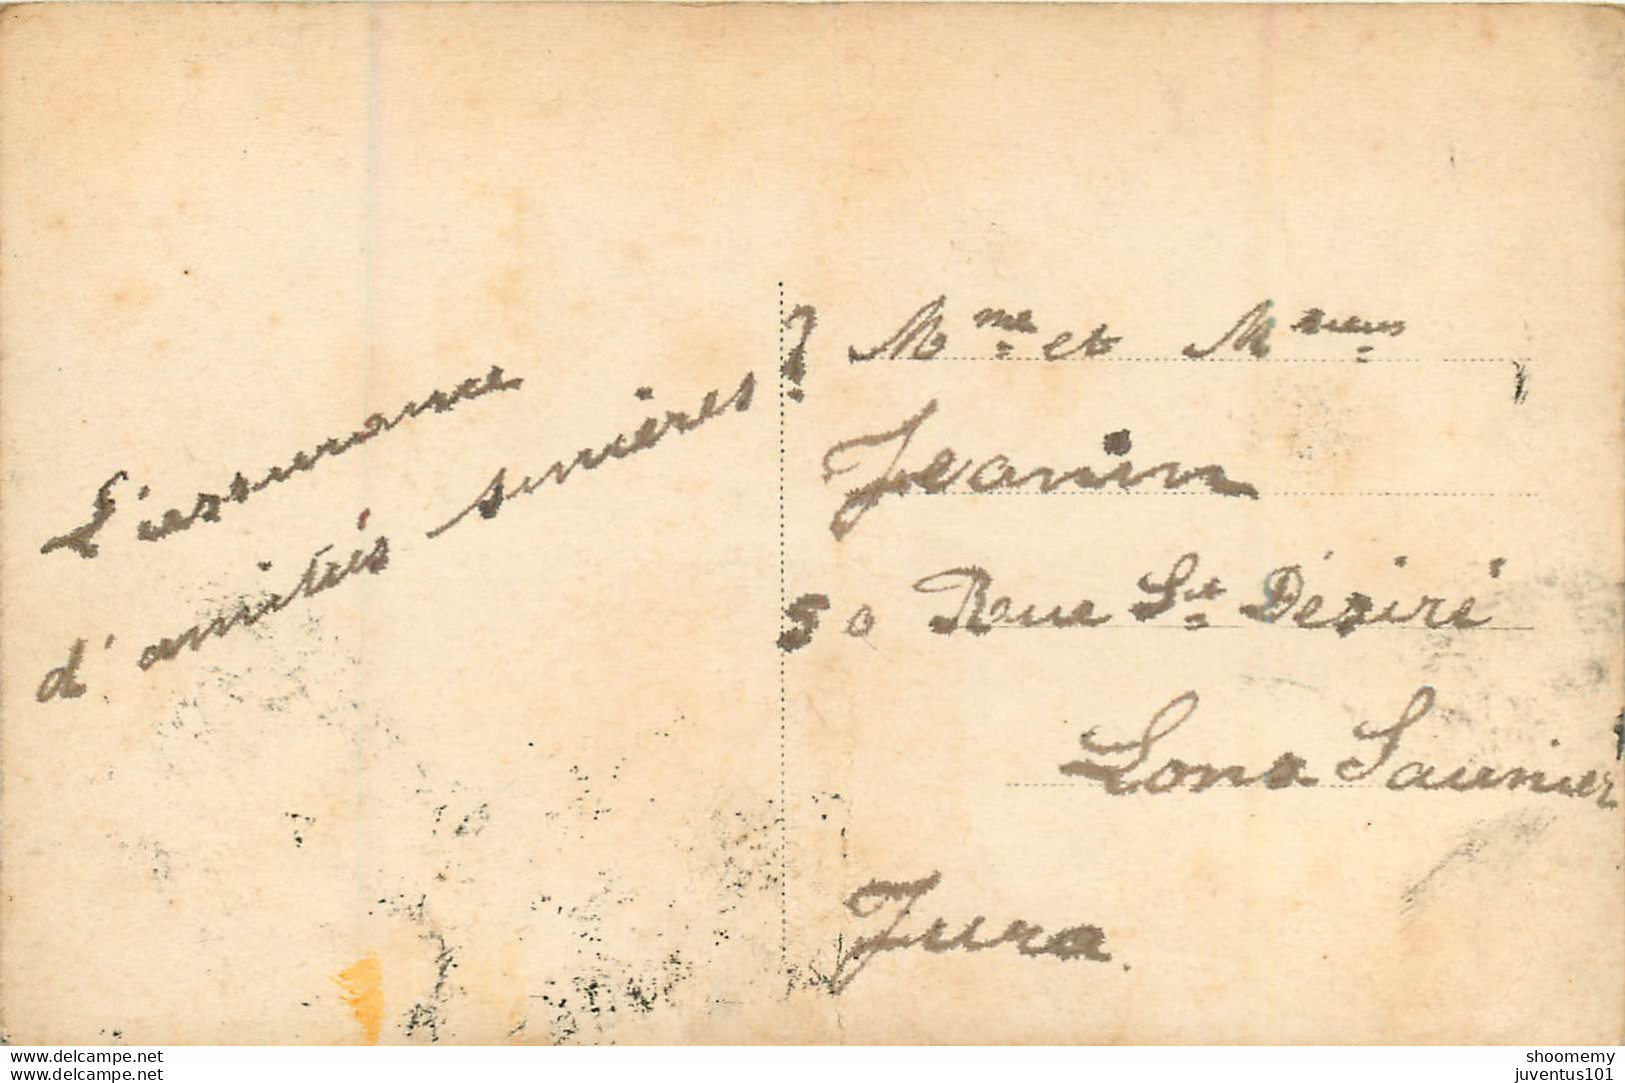 L'assurance
d'amitiés sincères ?
Mme et Msieurs
Jeanin
50 Rue St Désiré
Lons Saunier
Jura.
www.delcampe.net
www.delcampe.net
shoomemy
juventus101